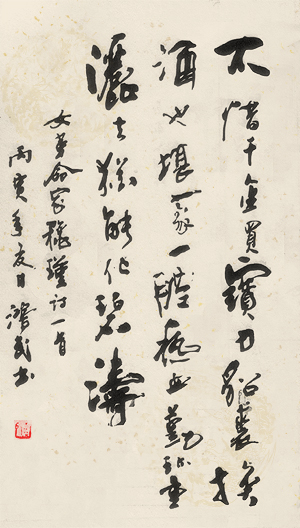 不惜千金買寶刀貂裘換
酒也堪豪一腔熱血勤珍重
灑去猶能化碧濤
女革命家秋瑾詩一首
丙寅年夏日 武書